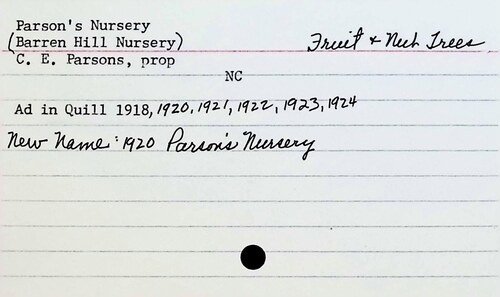 Parson's Nursery
(Barren Hill Nursery)
Fruit & Nut Trees
C. E. Parsons, prop
NC
Ad in Quill 1918, 1920, 1921, 1922, 1923, 1924
New Name: 1920 Parson's Nursery